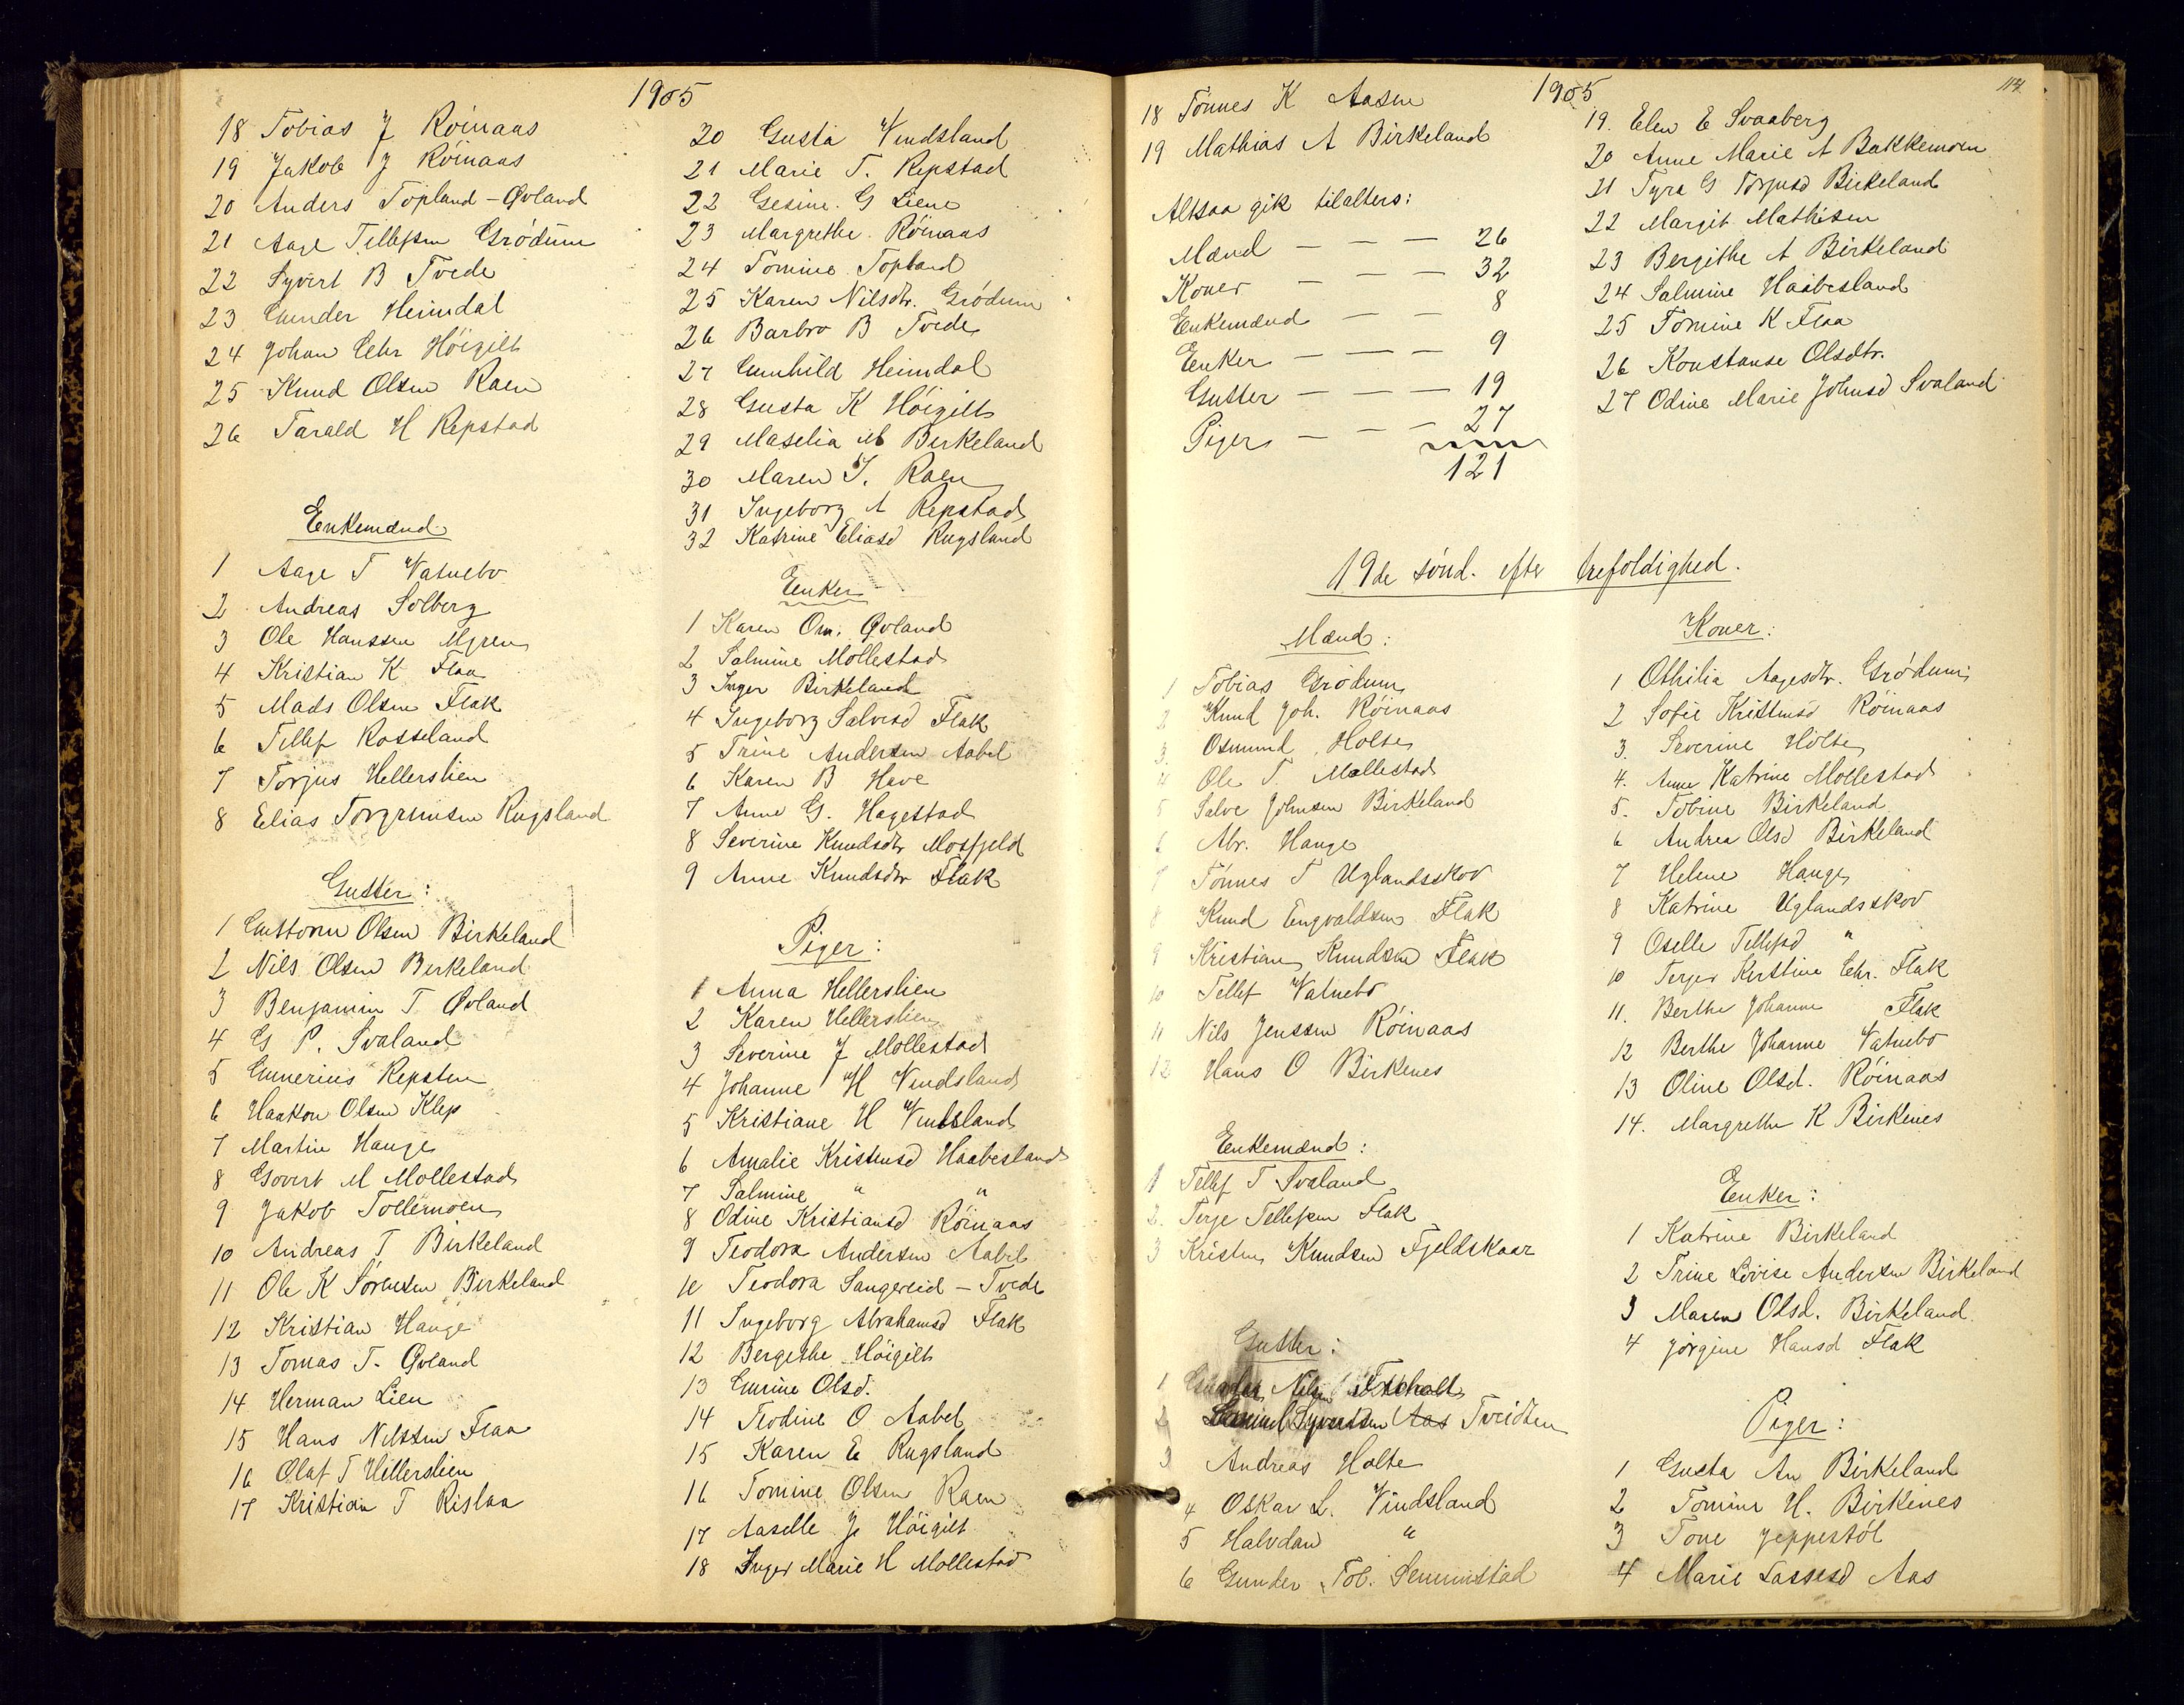 1905
18 Tobias J Röinaas
19 Jakob J Röinaas
20 Anders Topland - Øvland
21 Aage Tellefsen Grödum
22 Syvert B Tvede
23 Gunder Heimdal
24 Johan Chr Höigilt
25 Knud Olsen Raen
26 Tarald H Repstad
Enkemænd
1 Aage T Vatnebo
2 Andreas Solberg
3 Ole Hanssen Myren
4 Kristian K Flaa
5 Mads Olsen Flak
6 Tellef Rosseland
7 Torjus Hellerslien
8 Elias Torgrimsen Rugsland
Gutter:
1 Guttorm Olsen Birkeland
2 Nils Olsen Birkeland
3 Benjamin T Øvland
4 G P. Svaland
5 Gunerius Repsten
6 Haakon Olsen Klep
7 Martin Hauge
8 Govert M Mollestad
9 Jakob Tollemoen
10 Andreas T Birkeland
11 Ole K Sörensen Birkeland
12 Kristian Hauge
13 Tomas T. Øvland
14 Herman Lien
15 Hans Nilssen Flaa
16 Olaf T Hellerslien
17 Kristian T Rislaa
20 Gusta Vindsland
21 Marie T. Repstad
22 Gesine G Liene
23 Margrethe Röinaas
24 Tomine Topland
25 Karen Nilsdtr. Grödum
26 Barbro B Tvede
27 Gunhild Heimdal
28 Gusta K Höigilt
29 Maselia M Birkeland
30 Maren T. Raen
31 Ingeborg A Repstad
32 Katrine Eliasd Rugsland
Enker
1 Karen Om. Øvland
2 Salmine Mollestad
3 Inger Birkeland
4 Ingeborg Salvesd Flak
5 Trine Andersen Aabel
6 Karen B Have
7 Anne G. Hagestad
8 Severine Knudsdtr Mosfjeld
9 Anne Knudsdtr Flak
Piger:
1 Anna Hellerslien
2 Karen Hellerslien
3 Severine J Mollestad
4 Johanne H Vindsland
5 Kristiane H Vindsland
6 Amalie Kristensd Haabesland
7 Salmine " "
8 Odine Kristiansd Röinaas
9 Teodora Andersen Aabel
10 Teodora Sangereid - Tvede
11 Ingeborg Abrahamsd Flak
12 Bergethe Höigilt
13 Gurine Olsd.
14 Teodine O Aabel
15 Karen E Rugsland
16 Tomine Olsen Raen
17 Aaselle J Höigilt
18 Inger Marie H Mollestad
1905
114
18 Tönnes K Aasen
19 Mathias A Birkeland
Altsaa gik tilalters:
Mænd — — — 26
Koner — — — 32
Enkemænd — — 8
Enker — — — 9
Gutter — — — 19
Piger — — — 27
121
19. Elen E Svaaberg
20 Anne Marie A Bakkemoen
21 Tyra G Torjusd Birkeland
22 Margit Mathisen
23 Bergithe A Birkeland
24 Salmine Haabesland
25 Tomine K Flaa
26 Konstanse Olsdtr.
27 Odine Marie Johnsd Svaland
19de sönd. efter trefoldighed.
Mænd:
1 Tobias Grödum
2 Knud Joh. Röinaas
3. Osmund Holte
4 Ole T. Mollestad
5 Salve Johnsen Birkeland
6 Abr. Hauge
7 Tönnes T Uglandsskov
8 Knud Engvaldsen Flak
9 Kristian Knudsen Flak
10 Tellef Vatnebo
11 Nils Jenssen Röinaas
12 Hans O Birkenes
Enkemænd:
1 Tellef T Svaland
2. Terje Tellefsen Flak
3 Kristen Knudsen Fjeldskaar
Gutter:
1 Nilsen
2 Syvertsen Aas Tveidten
3 Andreas Holte
4 Oskar L. Vindsland
5 Halvdan "
6 Gunder Tob. Senumstad
Koner:
1 Othilia Aagesdtr. Grödum
2 Sofie Kristensd Röinaas
3. Severine Holte
4. Anne Katrine Mollestad
5. Tobine Birkeland
6 Andrea Olsd Birkeland
7 Helene Hauge
8 Katrine Uglandsskov
9 Oselle Tellefsd "
10 Terjer Kirstine Chr. Flak
11. Berthe Johanne Flak
12 Berthe Johanne Vatnebo
13 Oline Olsd. Röinaas
14. Margrethe K Birkenes
Enker:
1 Katrine Birkeland
2 Trine Lovise Andersen Birkeland
3 Maren Olsd. Birkeland
4 Jörgine Hansd Flak
Piger:
1 Gusta An Birkeland
2 Tomine H. Birkenes
3 Tone Jeppestöl
4 Marie Lassesd Aas